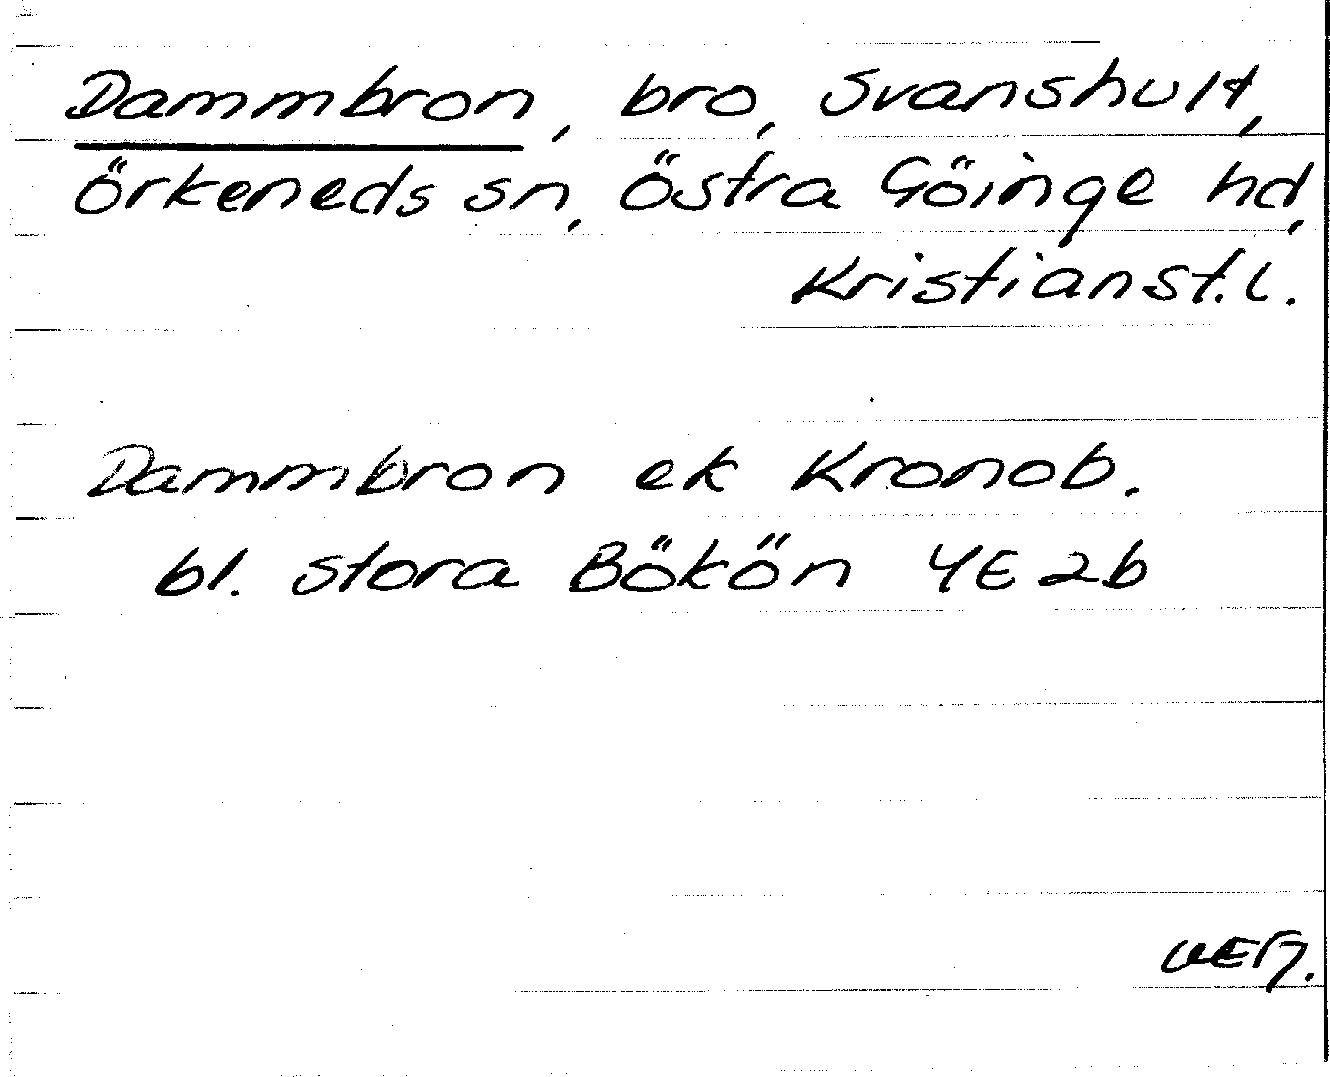 Dammbron, bro, Svanshult,
Örkeneds sn, Östra Göinge hd,
Kristianst. l.
Dammbron ek Kronob.
bl. stora Bökön 4E2b